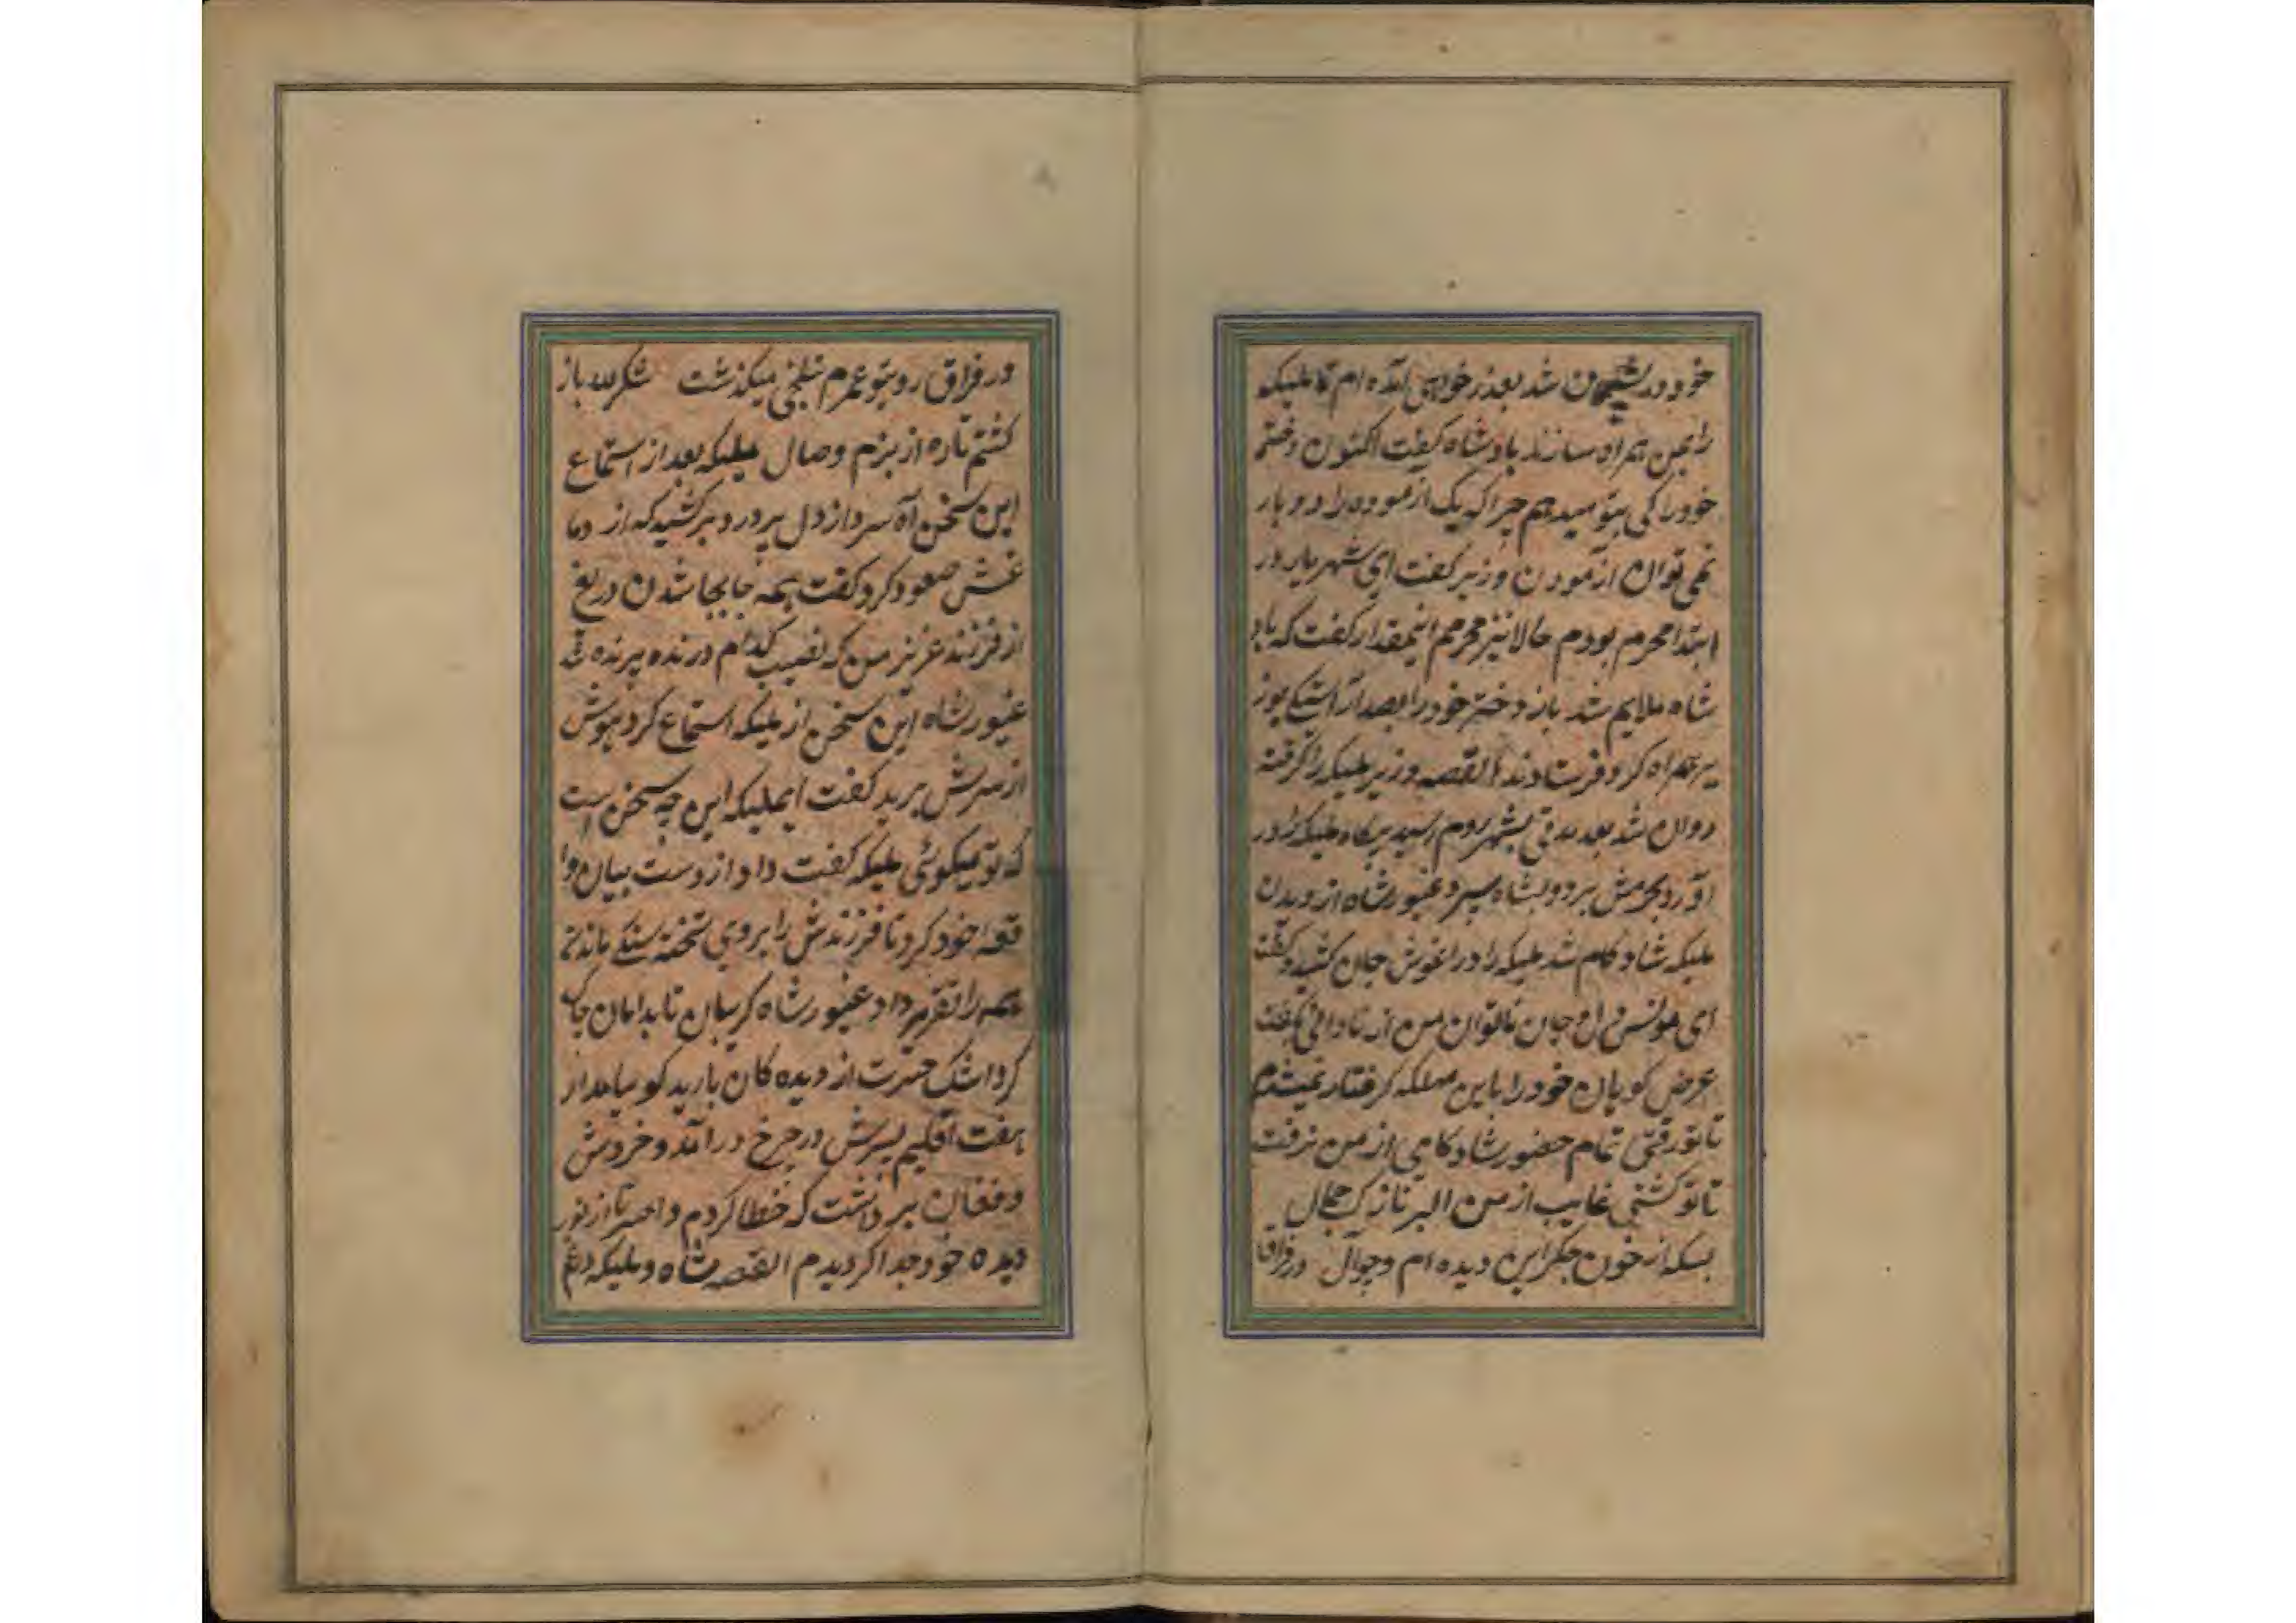 خود در پشیمان شد بعذر خواهی آمده ام تا ملیکه
را بمن همراه سازند بادشاه گفت اکنون دختر
خود را کی بتو میدهم چرا که یک ازموده را دو بار
نمی توان ازمودن وزیر گفت ای شهریار در
ابتدا محرم بودم حالا نیز محرمم اینمقدار گفت که باد
شاه ملایم شد باز دختر خود را بصد آراستگی
همراه کرد فرستادند القصه وزیر ملیکه را گرفته
روان شد بعد مدتی بشهر روم رسید ملیکه را در
آورد بحرمش برد و بشاه سپرد غیور شاه از دیدن
ملیکه شاد کام شد ملیکه را در اغوش جان کشید گفت
ای مونس دل و جان ناتوان من از نادانی
عرض گویان خود را باین مهلکه گرفتار
تا تو رفتی تمام حضور شاد کامی از من برفت
تا تو گشتی غایب از من
بسکه از خون جگر این دیده ام در فراق
در فراق رو بتو عمرم بتلخی میگذشت شکر لله باز
گشتم تازه از بزم وصال ملیکه بعد از استماع
این سخن آه سرد از دل پر درد بر کشید که از دما
غش صعود کرد گفت همه جا بجا شدن دریغ
از فرزند عزیز من که نصیب کدام درنده پرنده شد
غیور شاه این سخن از ملیکه استماع کرد هوش
از سرش پرید گفت ایملیکه این چه سخن است
که تو میگوئی ملیکه گفت داد از دست بیان وا
قعه خود کرد تا فرزندش را بروی تخته سنگ ماندن
همه را تقریر داد غیور شاه گریبان تا بدامان چاک
کرد اشک حسرت از دیده کان بارید گو بیامدار
هفت اقلیم بسرش در چرخ در آمد و خروش
و فغان بر داشت که خطا کردم و احسرتا از نور
دیده خود جدا گردیدم القصه شاه و ملیکه داغ